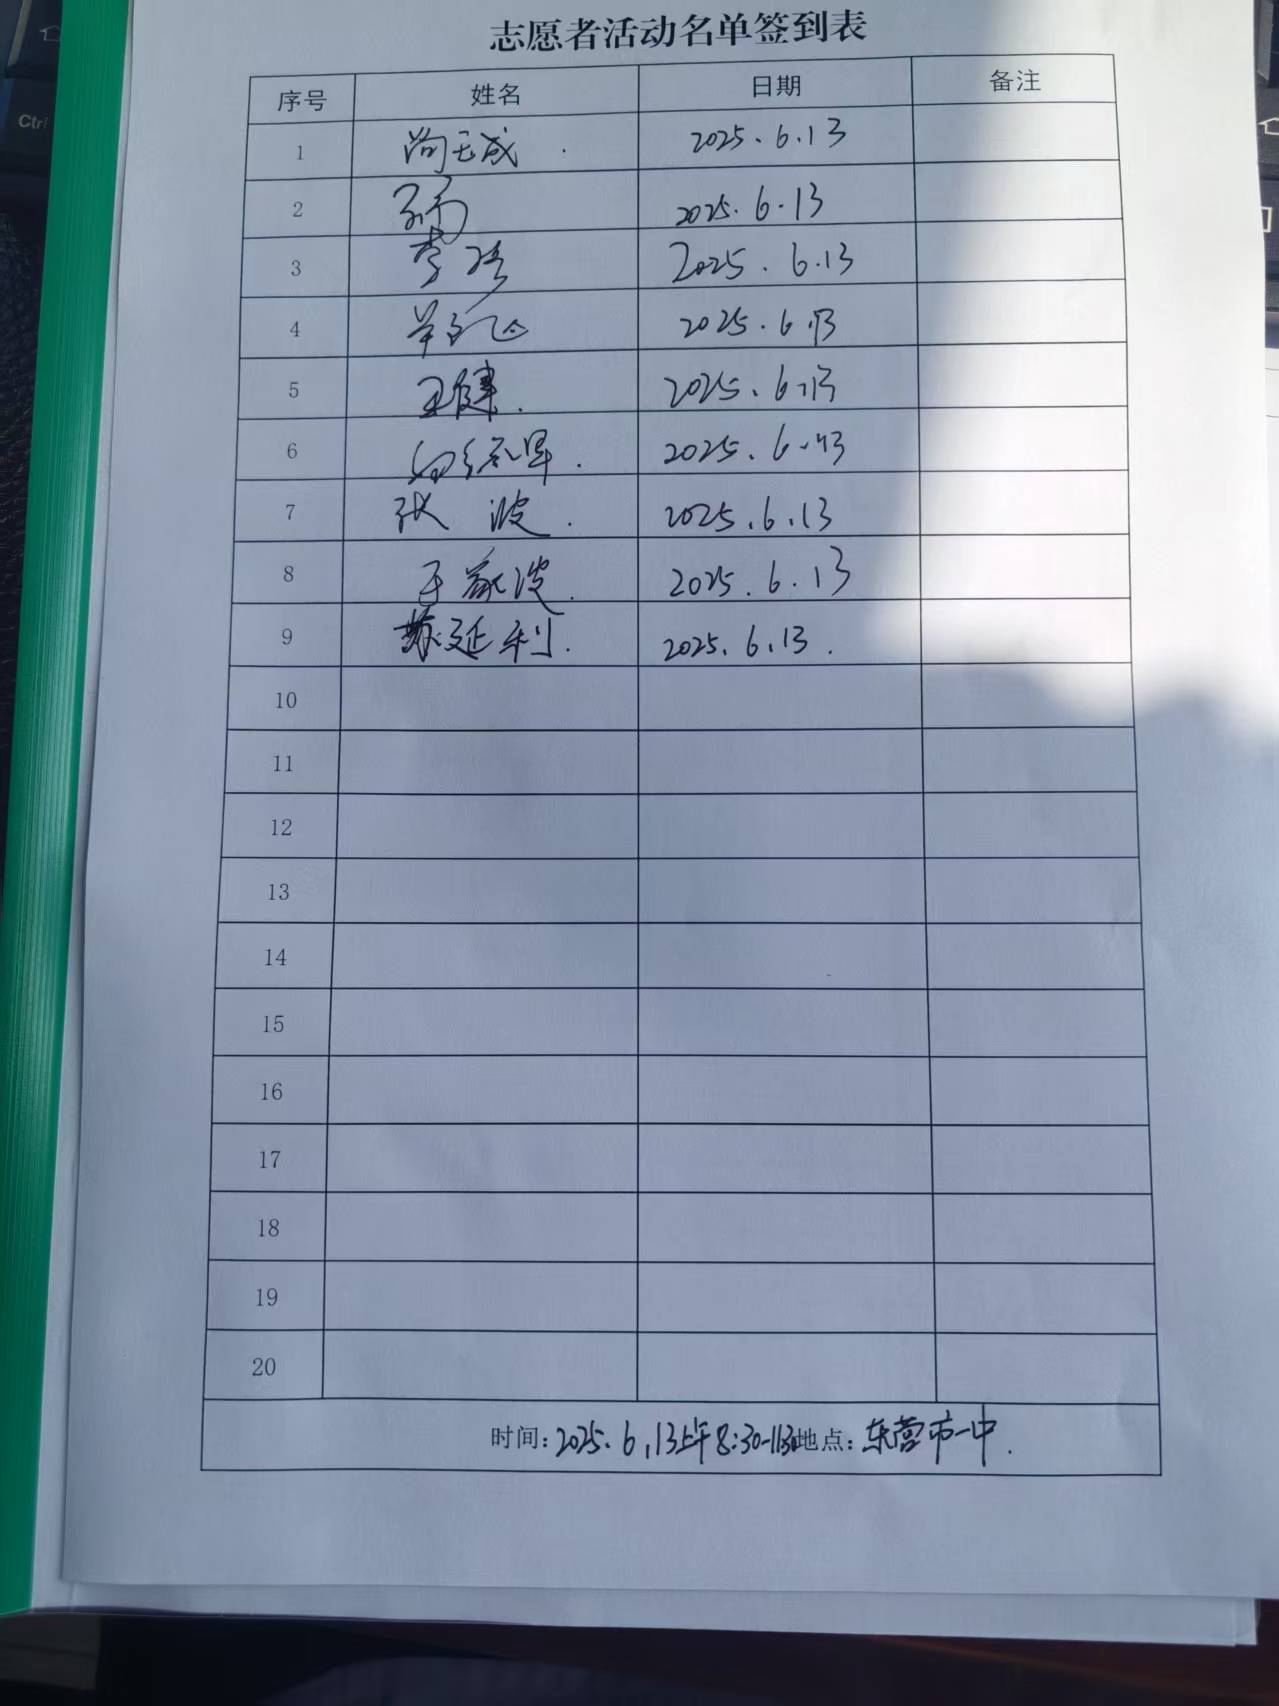 志愿者活动名单签到表
序号 姓名 日期 备注
1 尚玉成 2025.6.13
2 2025.6.13
3 李 2025.6.13
4 2025.6.13
5 王健 2025.6.13
6 2025.6.13
7 张波 2025.6.13
8 于 波 2025.6.13
9 苏延利 2025.6.13
10
11
12
13
14
15
16
17
18
19
20
时间:2025.6.13上午8:30-1130地点:东营市一中
Ctrl